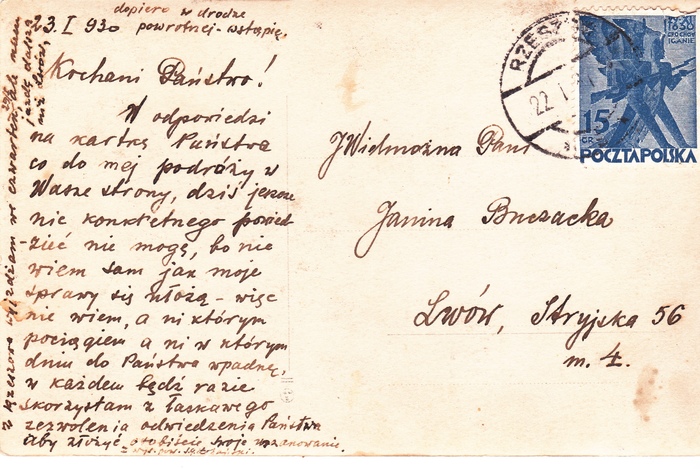 dopiero w drodze
powrotnej - wstąpię.
23. I 930
Kochani Państwo!
W odpowiedzi
na kartkę Państwa
co do mej podróży w
Wasze strony, dziś jeszcze
nic konkretnego powied-
-zieć nie mogę, bo nie
wiem sam jak moje
sprawy się ułożą - więc
nie wiem, a ni którym
pociągiem a ni w którym
dniu do Państwa wpadnę,
w każdem bądź razie
skorzystam z łaskawego
zezwolenia odwiedzenia Państwa
aby złożyć osobiście swoje uszanowanie.
z Rzeszowa wyjeżdżam w czwartek, ale mam
jazdę dalszą
niż Lwów,
RZESZÓW 1
22. I
1830
1930
GROCHÓW
IGANIE
15
GR
POCZTA POLSKA
JWielmożna Pani
Janina Buczacka
Lwów, Stryjska 56
m. 4.